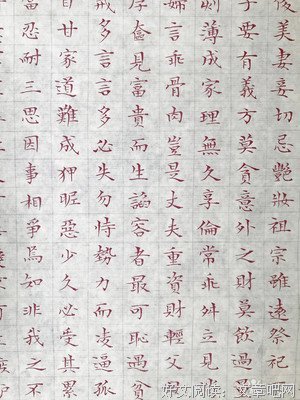 俊美妻妾切忌艷妝祖宗雖遠祭祀
子要有義方莫貪意外之財莫飲過
刻薄成家理無久享倫常乖舛立見
婦言乖骨肉豈是丈夫重資財輕父
厚奩見富貴而生諂容者最可恥過貧
戒多言言多必失勿恃勢力而凌逼孤
甘家道難成狎昵惡少久必受其累
當忍耐三思因事相爭焉知非我之不
好文阅读：文章吧网